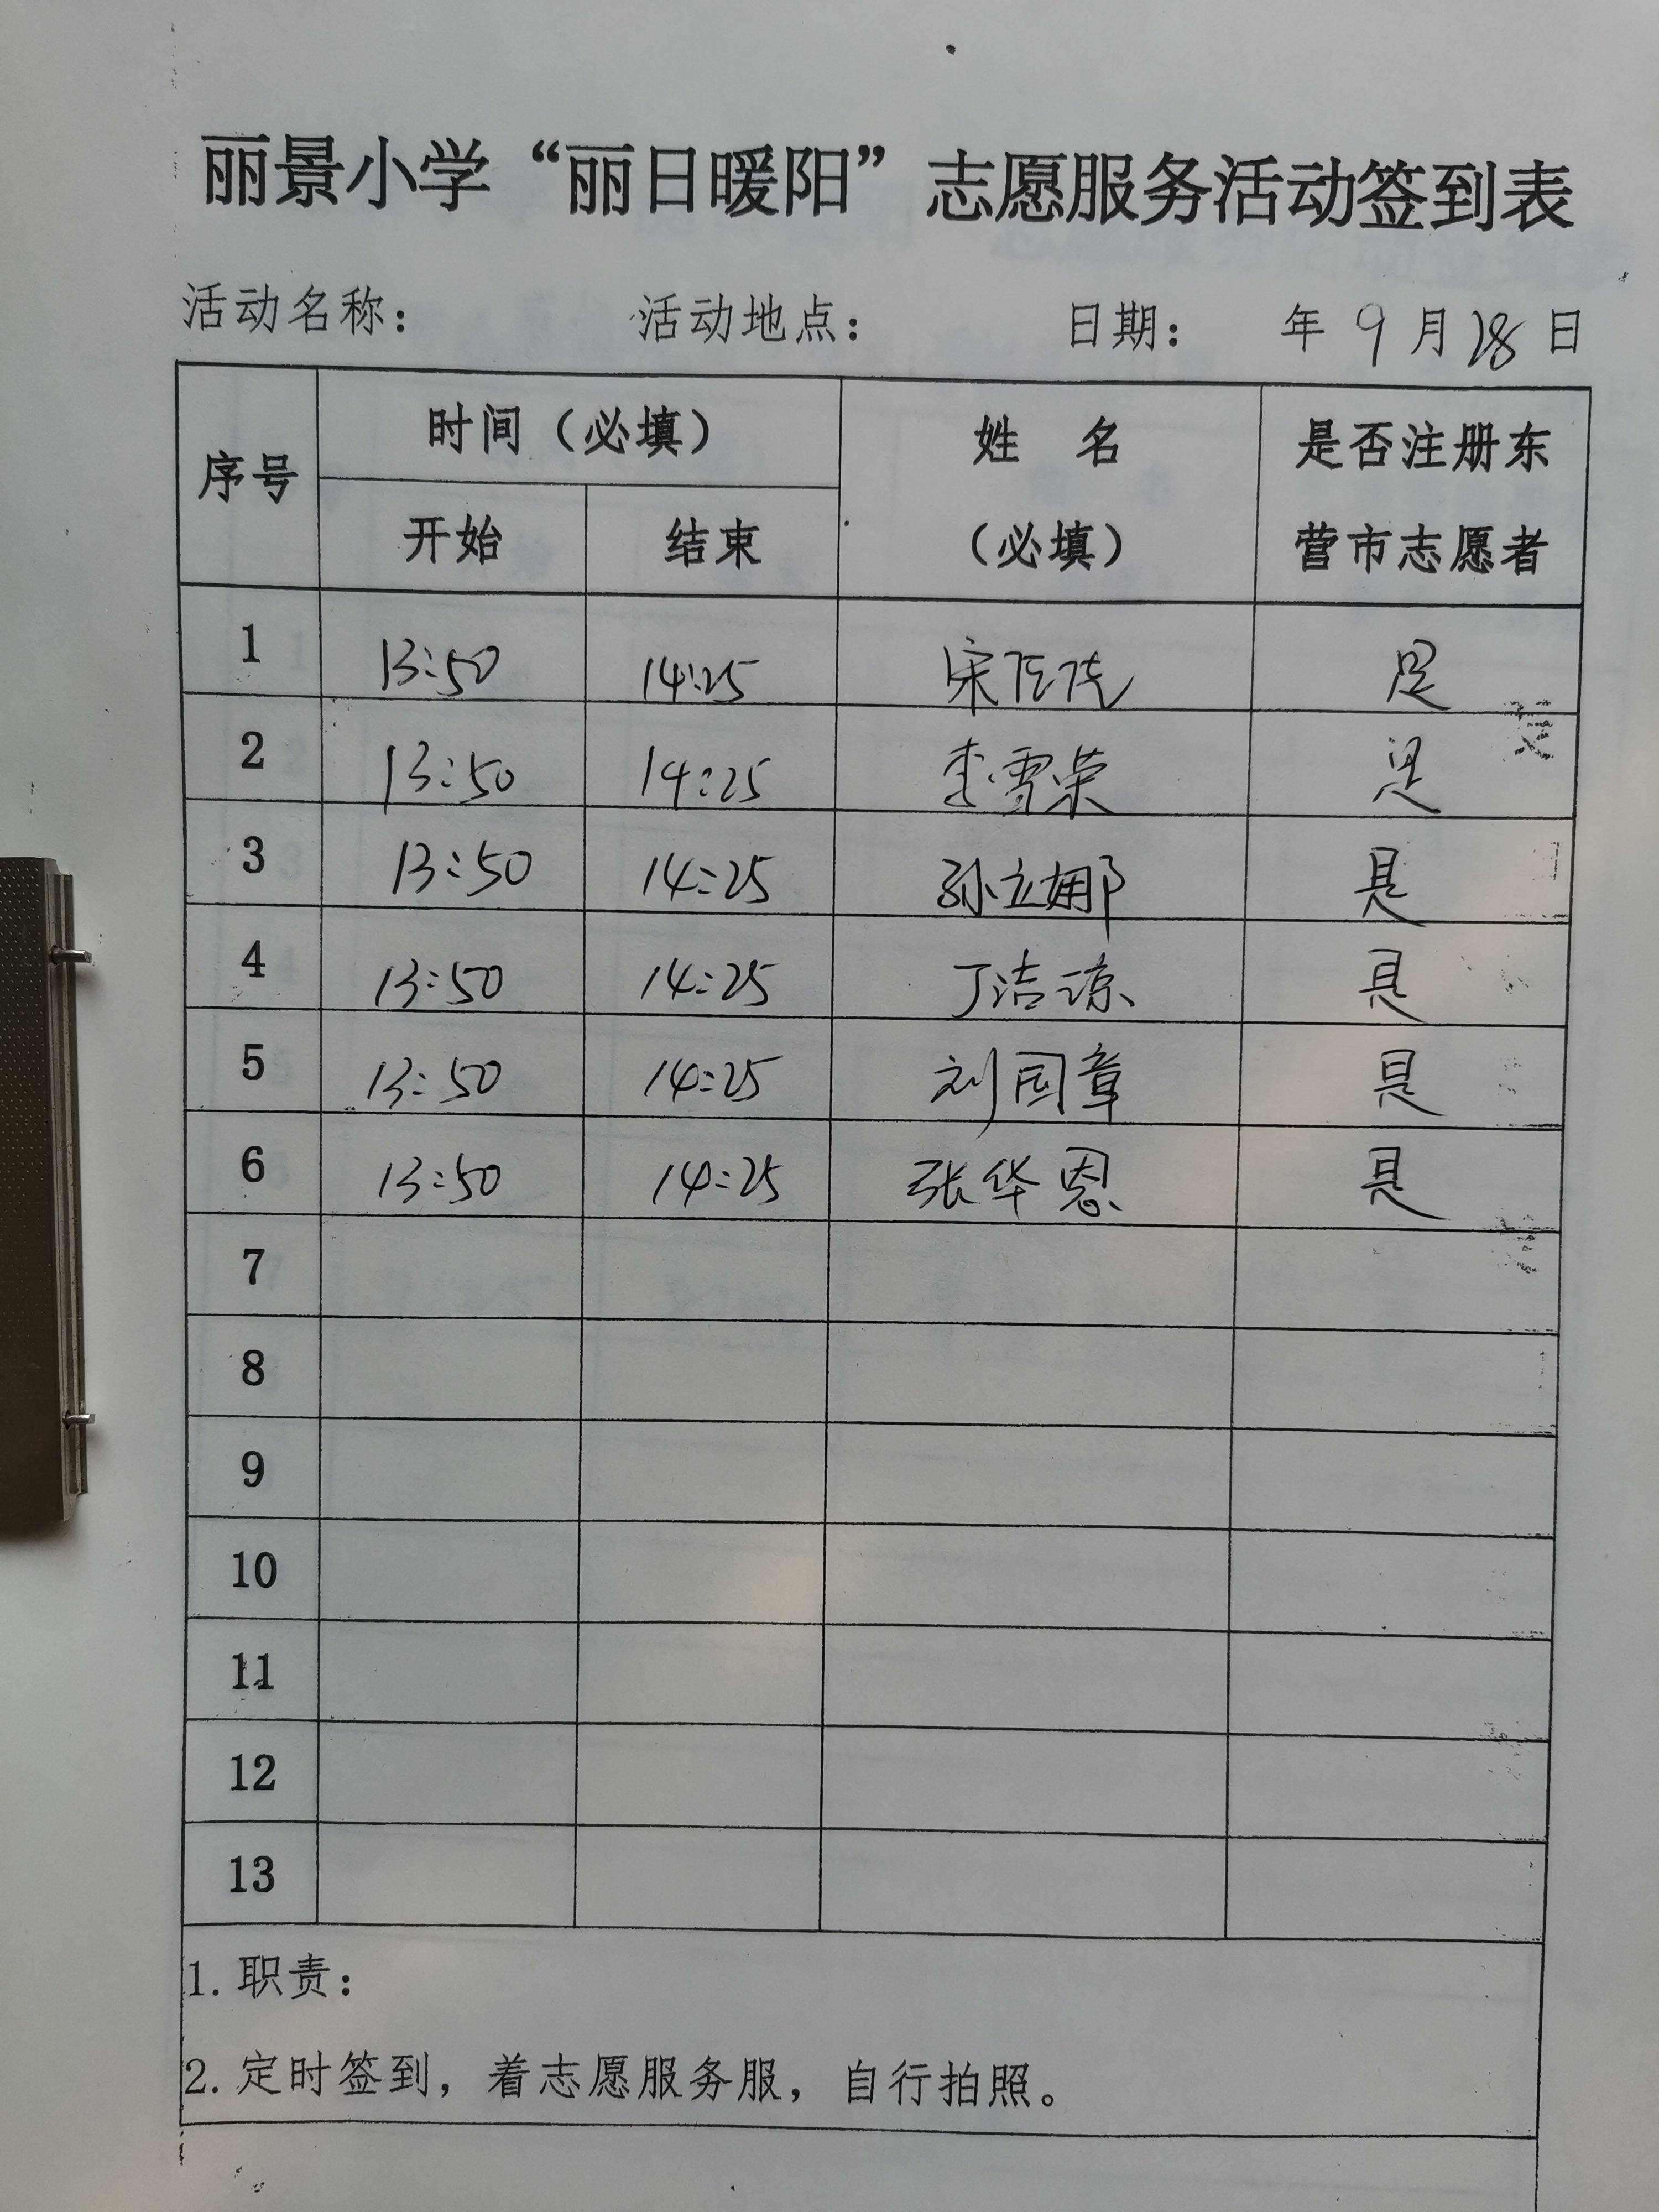 丽景小学“丽日暖阳”志愿服务活动签到表
活动名称： 活动地点： 日期： 年 9 月 28 日
序号 时间（必填） 姓 名（必填） 是否注册东营市志愿者
开始 结束
1 13:50 14:25 宋 是
2 13:50 14:25 李雪荣 是
3 13:50 14:25 孙立娜 是
4 13:50 14:25 丁洁琼 是
5 13:50 14:25 刘国章 是
6 13:50 14:25 张华恩 是
7
8
9
10
11
12
13
1.职责：
2.定时签到，着志愿服务服，自行拍照。